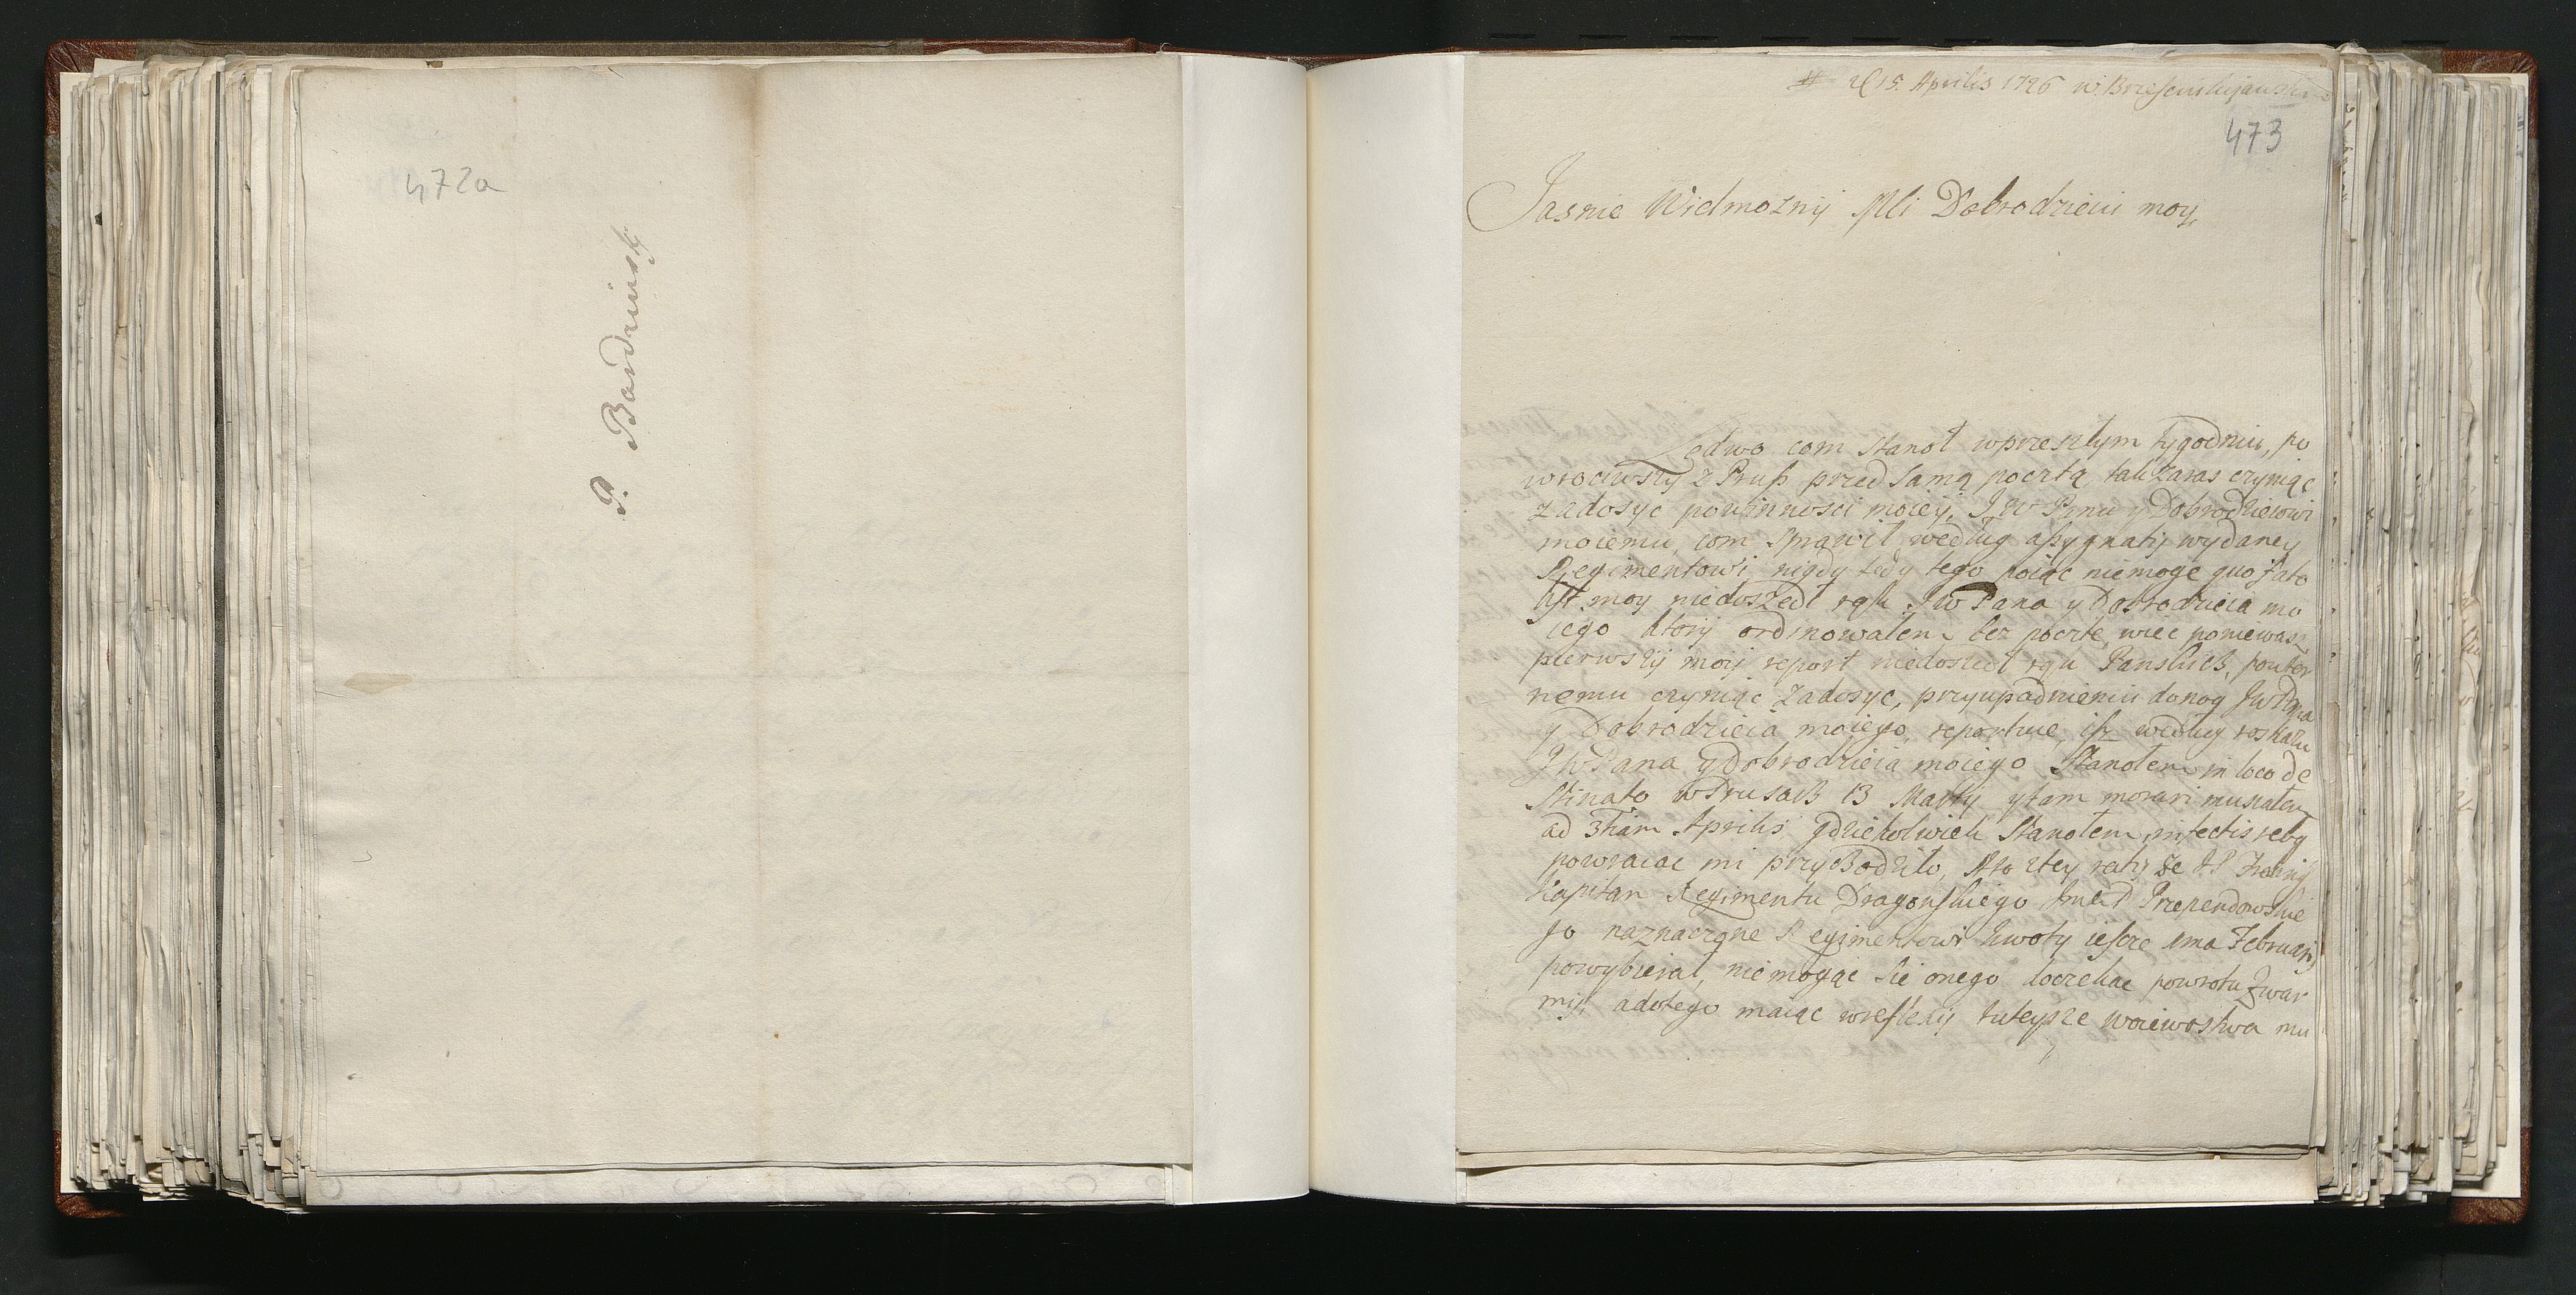 472a
P. Bardziński
d 15. Aprilis 1726 w Brzesciu Kujawskim
473
Jasnie Wielmozny Mci Dobrodzieiu moy
Ledwo com stanoł wprzeszłym tygodniu, po
wrociwszy z Pruß przed samą pocztą, tak zaras czyniąc
zadosyc powinnosci moiey, J W Panu y Dobrodzieiowi
moiemu, com sprawił według assygnaty wydaney
Regimentowi, nigdy tedy tego poiąc niemogę quo fato
list moy niedoszedł rąk J W Pana y Dobrodzieia mo
iego ktory ordinowałem bez pocztę, więc poniewasz
pierwszy moy report niedoszedł rąk Panskich, powtor
nemu czyniąc zadosyc, przyupadnieniu donog JW Pana
y Dobrodzieia moiego, reportuie, isz według roskazu
JW Pana y Dobrodzieia moiego Stanołem in loco de
stinato w Prusach 13 Martij y tam morari musiałem
ad 3tiam Aprilis, gdziekolwiek Stanołem, infectis rebus
powracac mi przychodziło, Kto ztey raty że JP
Kapitan Regimentu Dragonskiego Jmci P Przependowskie
go naznaczone Regimentowi kwoty iescze ima Februarij
powybierał, niemogąc się onego doczekac powrotu z War
mij, adotego maiąc wreflexij tuteysze woiewostwa mu